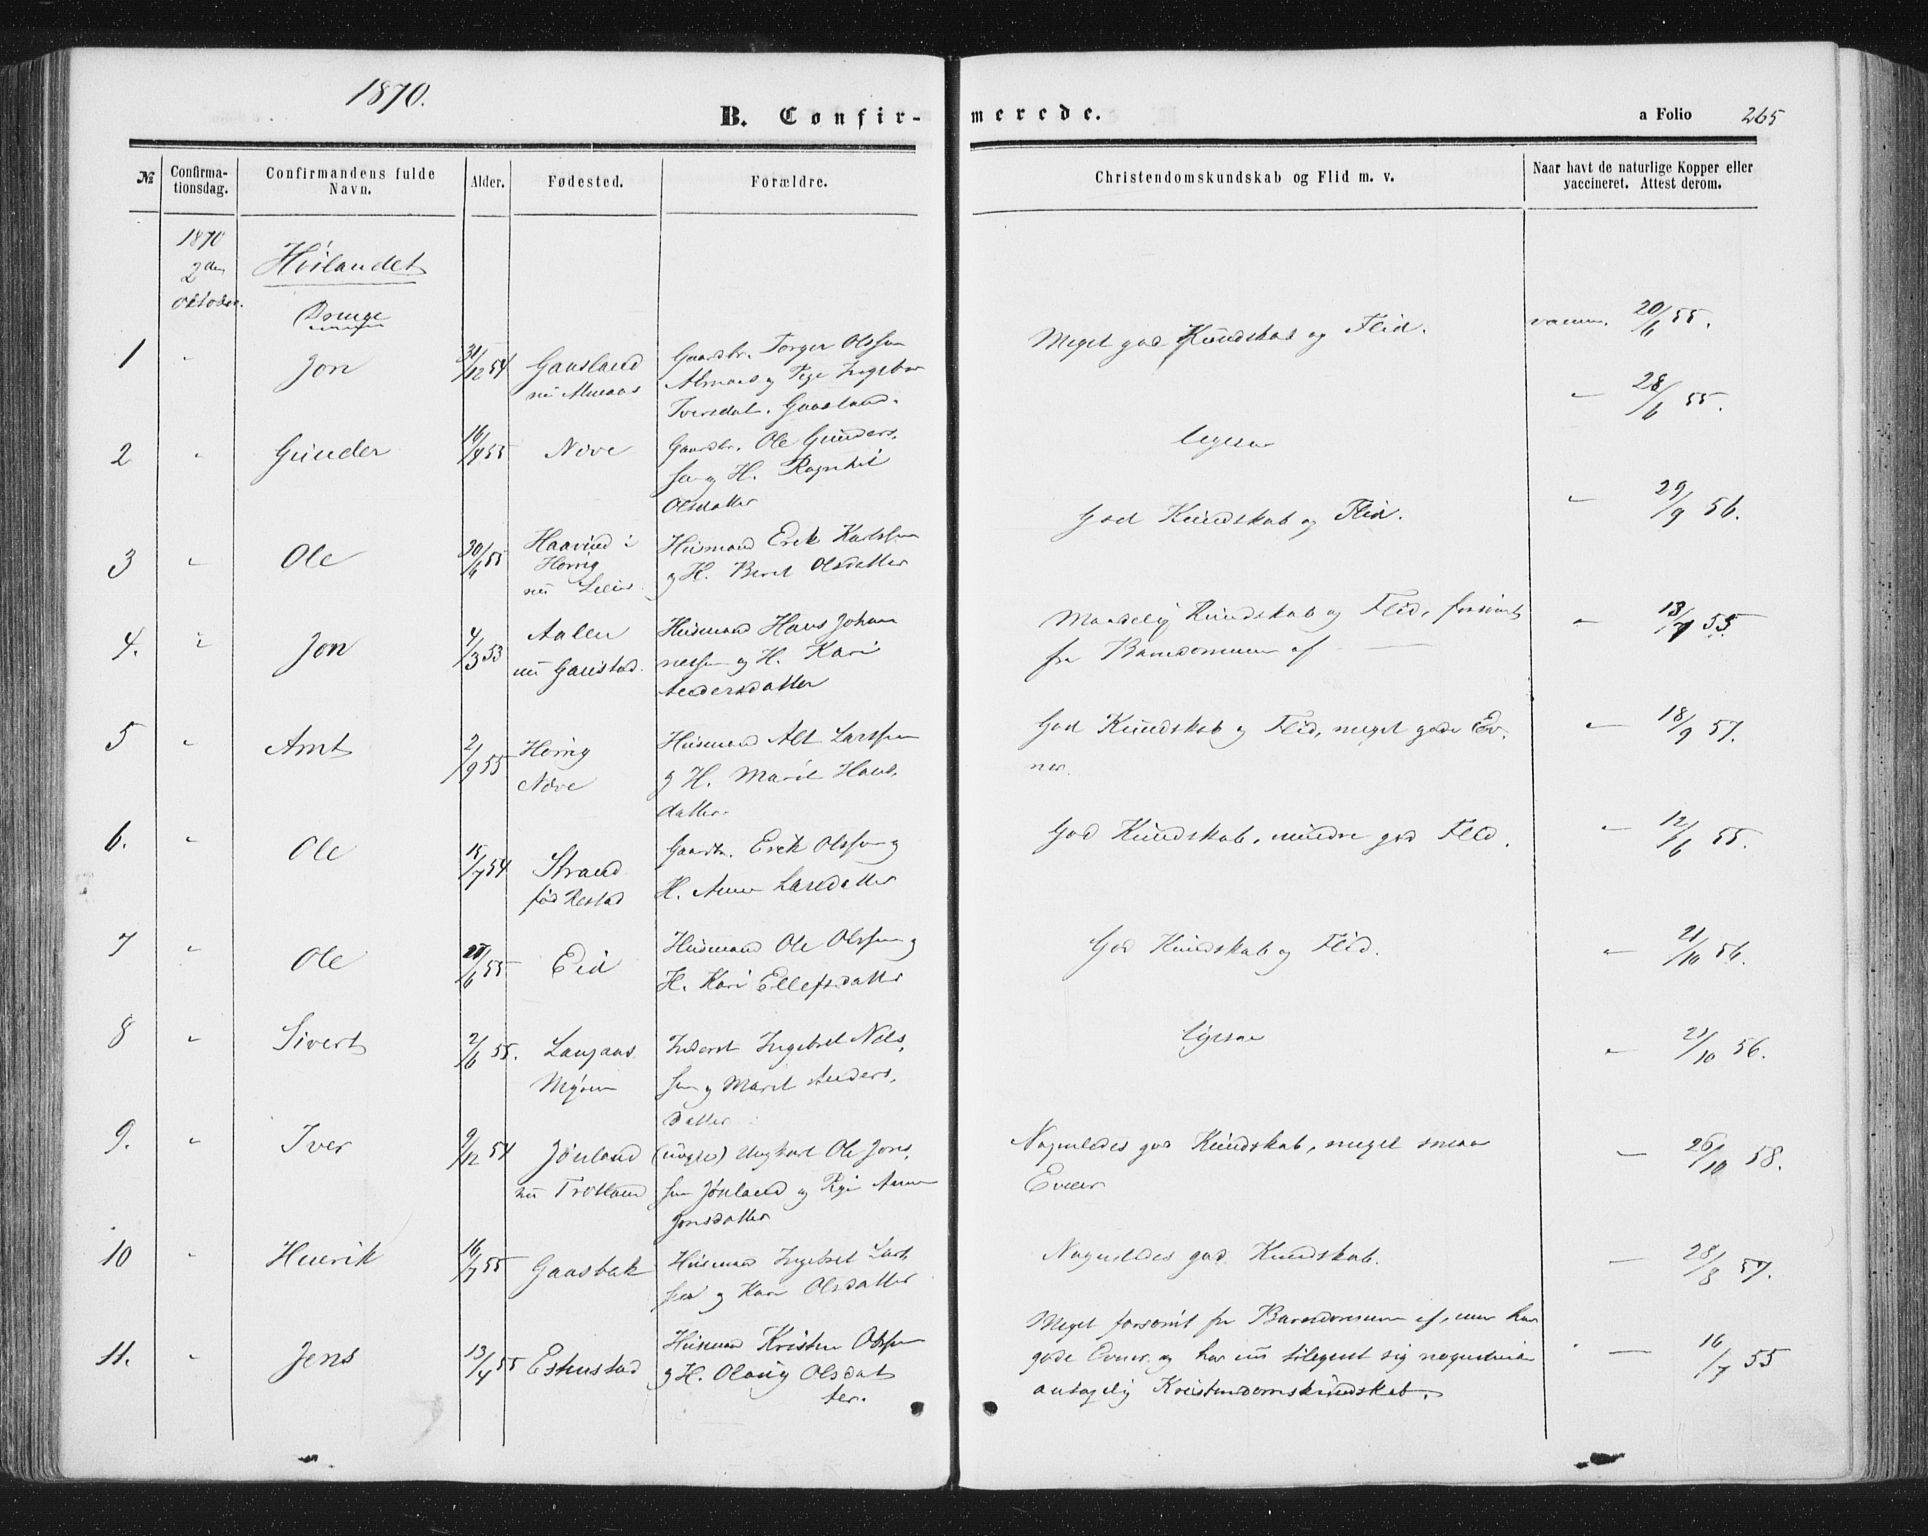 1870.
B. Confir-
merede.
a Folio 265
№
Confirma-
tionsdag.
Confirmandens fulde
Navn.
Alder.
Fødested.
Forældre.
Christendomskundskab og Flid m. v.
Naar havt de naturlige Kopper eller
vaccineret. Attest derom.
1870
2den
Oktober.
Høilandet
Drenge
1 " Jon 31/12 54 Gaasland
Gaardbr. Torger Olssen
og Pige Ingebor
Iversdat. Gaasland.
Meget god Kundskab og Flid.
vaccin. 20/6 55.
2 " Gunder 16/4 55
Gaardbr. Ole Gunders.
sen og H. Ragnhil
Olsdatter
ligesaa
" 28/6 55.
3 " Ole 30/4 55
Husmand Erik Karlssen
og H. Berit Olsdatter
God Kundskab og Flid.
" 29/9 56.
4. " Jon 4/3 53 Aalen
nu Gaustad.
Husmand Hans Johan
nessen og H. Kari
Andersdatter
Maadelig Kundskab og Flid, forsømt
fra Barndommen af
" 13/7 55.
5 " Arnt 2/9 55 Horrig
Husmand Alt Larssen
og H. Marit Hans.
datter.
God Kundskab og Flid, meget gode Ev.
ner.
" 18/9 57.
6. " Ole 15/7 54 Strand
fød Restad
Gaardbr. Erik Olssen og
H. Anne Larsdatter
God Kundskab, mindre god Flid.
" 12/6 55.
7 " Ole 27/6 55 Eid
Husmand Ole Olssen og
H. Kari Ellefsdatter
God Kundskab og Flid.
" 21/10 56.
8 " Sivert 2/6 55. Langaas
Inderst Ingebret Nils.
sen og Marit Anders.
datter
ligesaa
" 21/10 56.
9. " Iver 9/12 54 Jönland
nu
(uægte) Ungkarl Ole Jons.
sen Jönland og Pige Anne
Jonsdatter
Nogenledes god Kundskab, meget smaa
Evner
" 26/10 58.
10 " Henrik 16/7 55 Gaasbak
Husmand Ingebret Lars
sen og Kari Olsdatter
Nogenledes god Kundskab.
" 28/8 57.
11. " Jens 13/4 55 Estenstad
Husmand Kristen Olssen
og H. Olaug Olsdat
ter.
Meget forsømt fra Barndommen af, men har
gode Evner og har nu tilegnet sig nogenlunde
antagelig Kristendomskundskab.
" 16/7 55